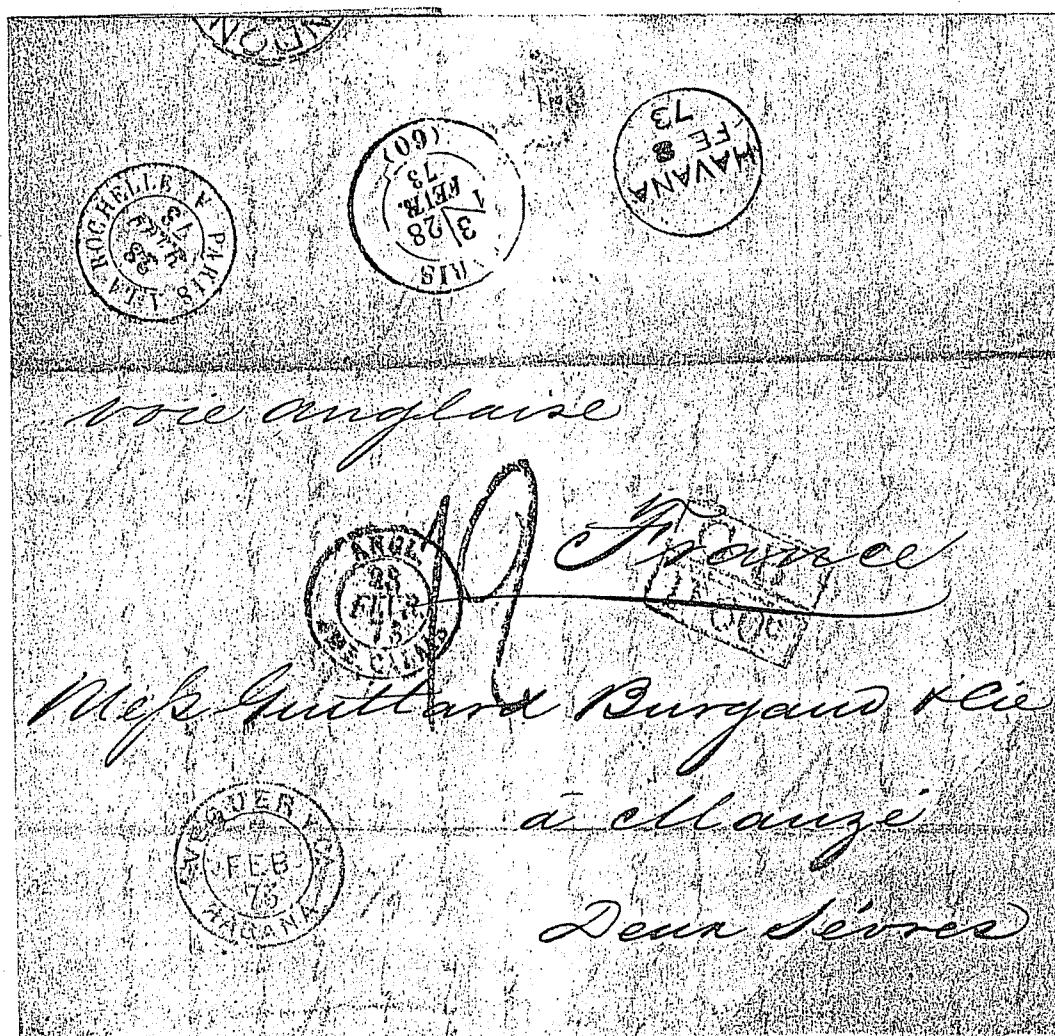 LA ROCHELLE A PARIS
28
FEVR
73
(60)
3/28
FEVR
73
HAVANA
FE 8
73
voie anglaise
ANGL.
28
FEVR
73
CALAIS
12
France
Mess Guittard Burgaud & Cie
à Mauzé
Deux Sèvres
Y CA
FEB
73
HABANA